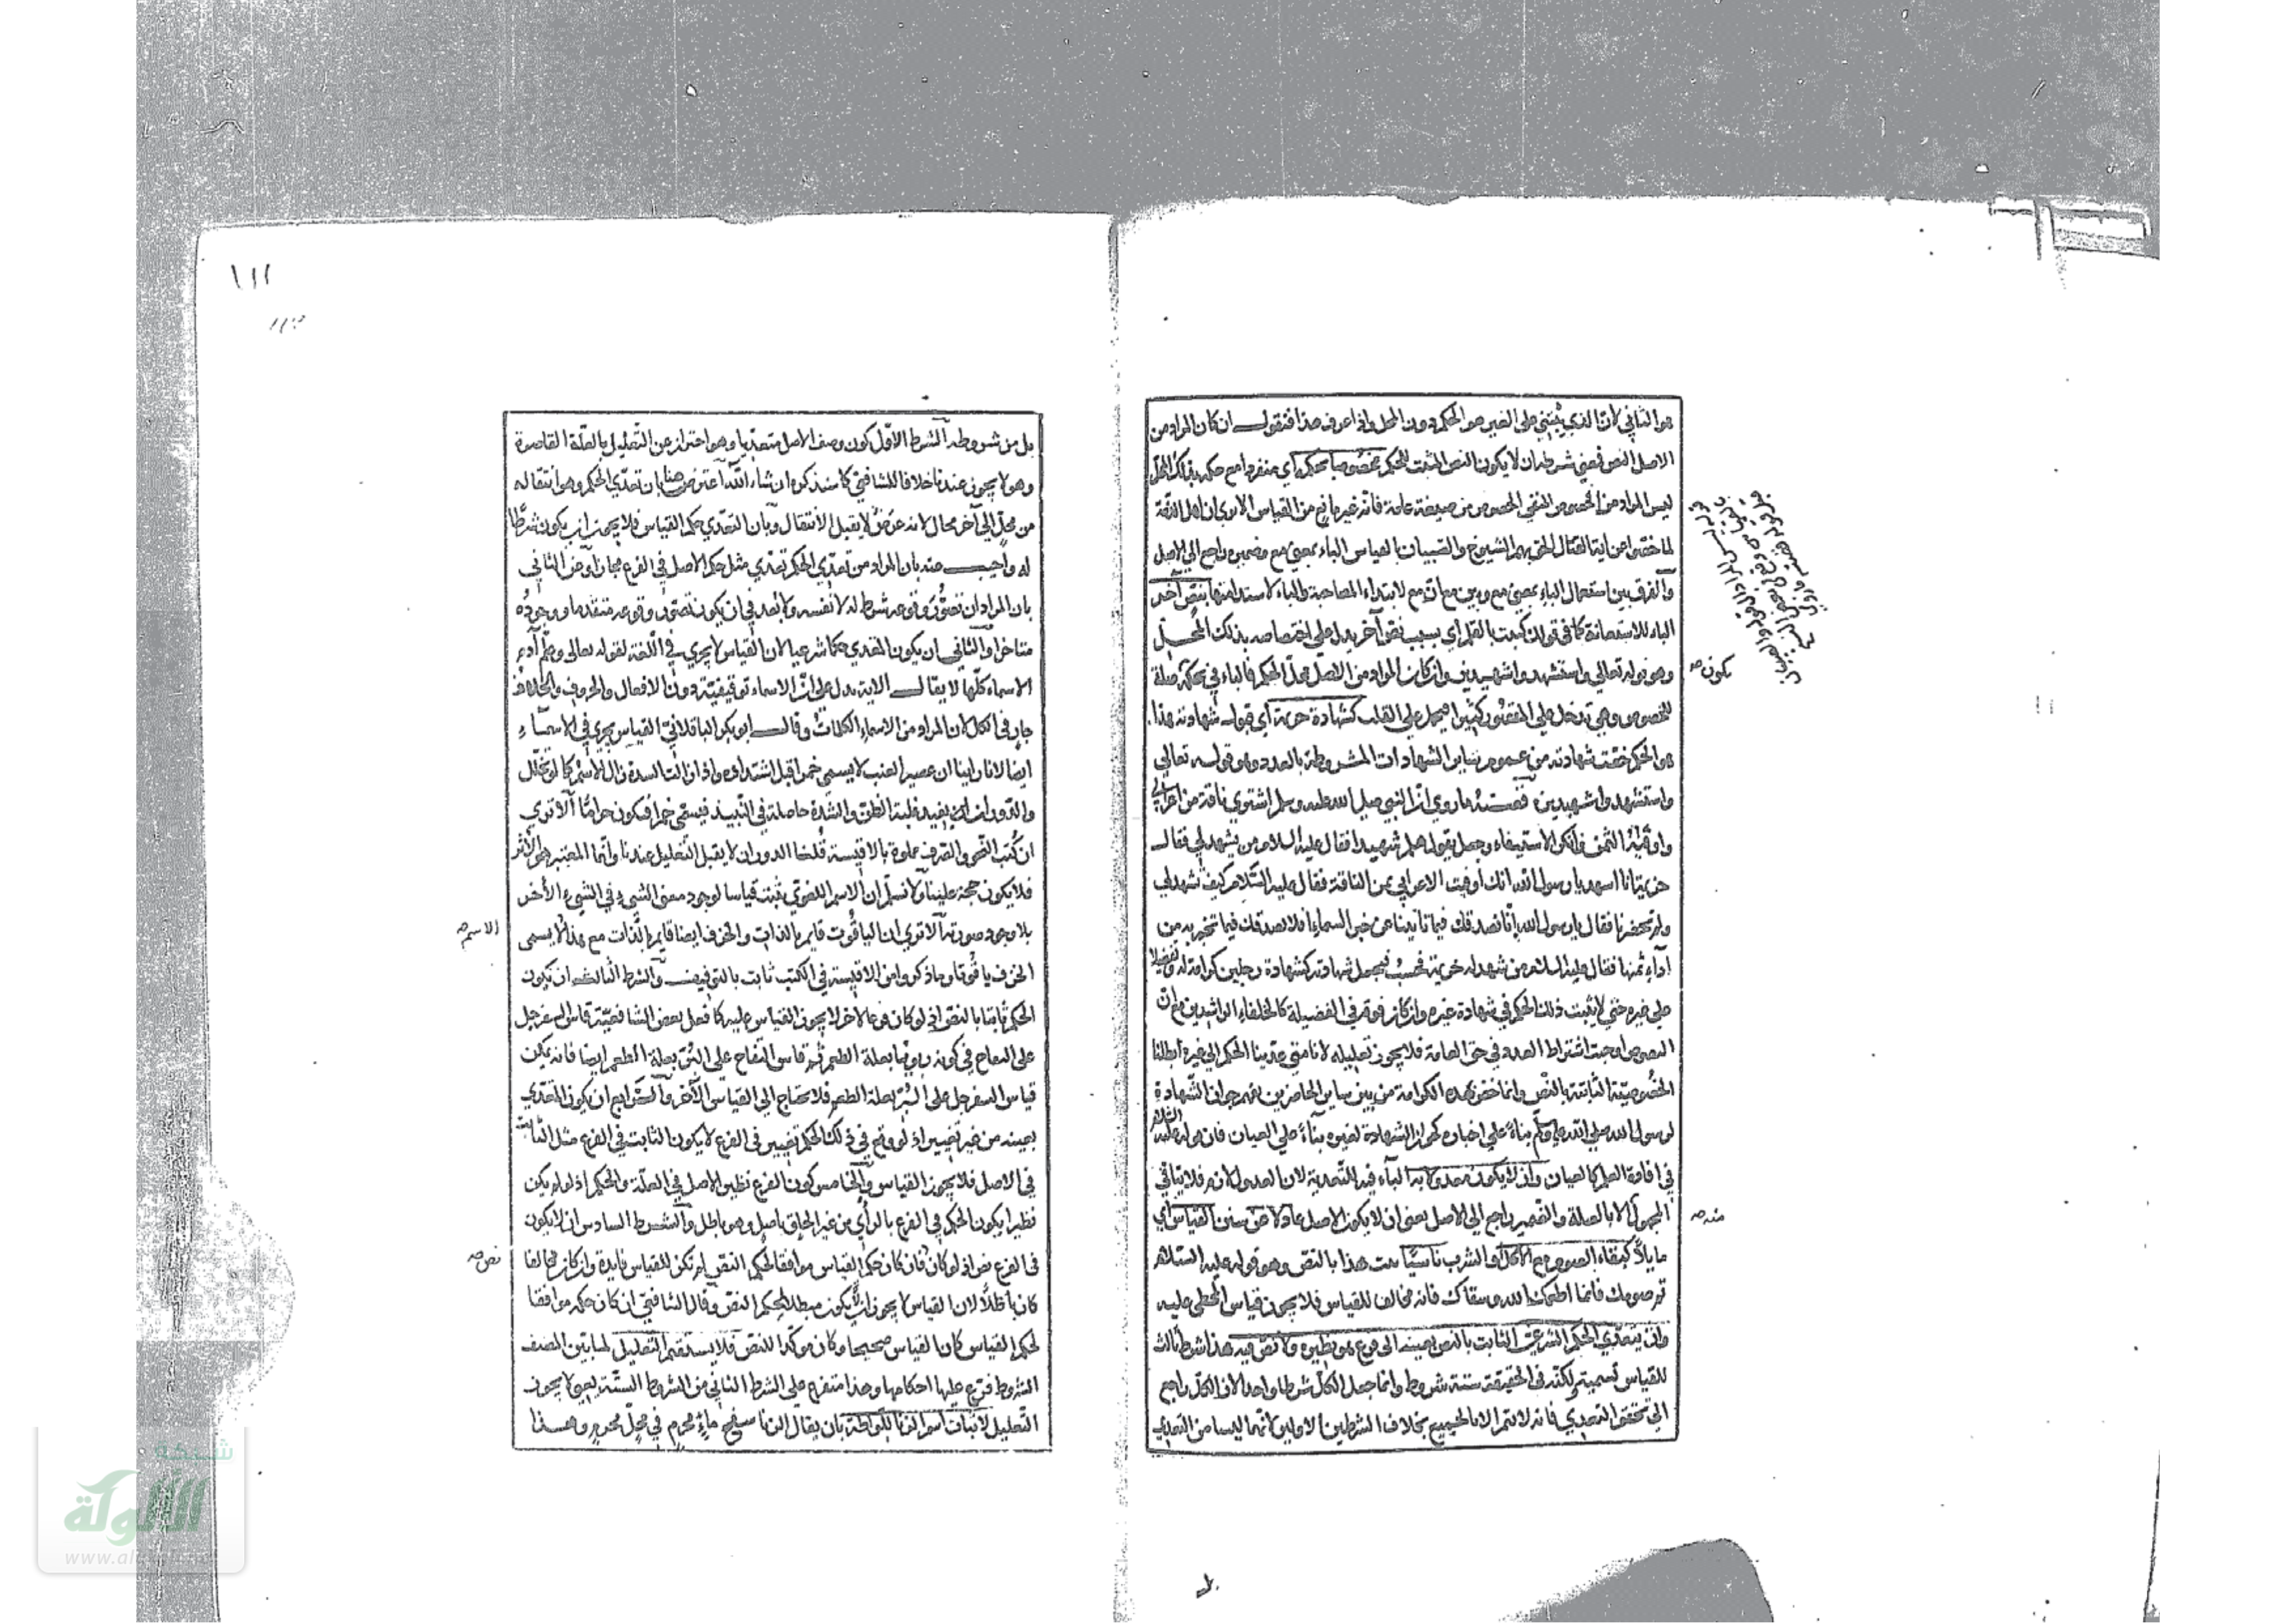 هو الثاني لان الذي يبتني على الغير هو الحكم دون المحل واذا عرف هذا فنقول ان كان المراد من
الاصل النص فمعنى شرطه ان لا يكون النص المثبت للحكم مخصوصا بحكمه اي منفردا مع حكمه بذلك المحل
ليس المراد من الخصوص الخصوص من صيغة عامة فانه غير مانع من القياس الا يرى ان اهل الذمة
لما خصوا عن اية القتال الحق بهم الشيوخ والصبيان بالقياس الباء بمعنى مع وضميره راجع الى الاصل
والفرق بين استعمال الباء بمعنى مع وبين مع ان مع لابتداء المصاحبة والباء لاستدامتها بنص آخر
الباء للاستعانة كما في قولك كتبت بالقلم اي بسبب نص آخر يدل على اختصاصه بذلك المحل
وهو قوله تعالى واستشهدوا شهيدين وان كان المراد من الاصل محل الحكم فالباء في بحكمه صلة
للخصوص وهي تدخل على المقصور كثيرا فيحمل على القلب كشهادة خزيمة اي قبول شهادته هذا
هو الحكم خصت شهادته من عموم سائر الشهادات المشروطة بالعدد وهو قوله تعالى
واستشهدوا شهيدين قصته ما روي ان النبي صلى الله عليه وسلم اشترى ناقة من اعرابي
واوفيه الثمن فانكر الاستيفاء وجعل يقول هلم شهيدا فقال عليه السلام من يشهد لي فقال
خزيمة انا اشهد يا رسول الله انك اوفيت الاعرابي ثمن الناقة فقال عليه السلام كيف تشهد لي
ولم تحضرنا فقال يا رسول الله انا نصدقك فيما تاتينا من خبر السماء افلا نصدقك فيما تخبر به من
اداء ثمنها فقال عليه السلام من شهد له خزيمة فحسبه فجعل شهادته كشهادة رجلين كرامة له وتفضيلا
على غيره حتى لا يثبت ذلك الحكم في شهادة غيره وان كان فوقه في الفضيلة كالخلفاء الراشدين مع ان
النصوص اوجبت اشتراط العدد في حق العامة فلا يجوز تعليله لانا متى عدينا الحكم الى غيره ابطلنا
الخصوصية الثابتة بالنص وانما خص بهذه الكرامة من بين سائر الحاضرين لفهم جواز الشهادة
لرسول الله صلى الله عليه وسلم بناء على اخباره كجواز الشهادة لغيره بناء على العيان فان قوله عليه السلام
في افادة العلم كالعيان وان لا يكون معدولا به الباء فيه للتعدية لان العدول لازم فلا يتاتى
المجهول الا بالصلة والضمير راجع الى الاصل يعني ان لا يكون الاصل عادلا عن سنن القياس اي
ما يلا كبقاء الصوم مع الاكل والشرب ناسيا ثبت هذا بالنص وهو قوله عليه السلام
تم صومك فانما اطعمك الله وسقاك فانه مخالف للقياس فلا يجوز قياس المخطي عليه
وان يتعدى الحكم الشرعي الثابت بالنص بعينه الى فرع هو نظيره ولا نص فيه هذا شرط ثالث
للقياس تسمية ولكنه في الحقيقة ستة شروط وانما جعل الكل شرطا واحدا لان الكل راجع
الى تحقق التعدي فانه لا يتم الا بالجميع بخلاف الشرطين الاولين فانهما ليسا من التعدي
يكون صح
منه صح
١١١
بل من شروطه الشرط الاول كون وصف الاصل متعديا وهو احتراز عن التعليل بالعلة القاصرة
وهو لا يجوز عندنا خلافا للشافعي كما سنذكره ان شاء الله اعترض هنا بان تعدي الحكم وهو انتقاله
من محل الى آخر محال لانه عرض لا يقبل الانتقال وبان التعدي حكم القياس فلا يجوز ان يكون شرطا
له واجيب عنه بان المراد من تعدي الحكم تعدي مثل حكم الاصل في الفرع مجازا وعن الثاني
بان المراد ان تصور وقوعه شرط له لا نفسه ولا بعد في ان يكون تصور وقوعه متقدما ووجوده
متاخرا والثاني ان يكون المتعدي حكما شرعيا لان القياس لا يجري في اللغة لقوله تعالى وعلم آدم
الاسماء كلها لا يقال الاية يدل على ان الاسماء توقيفية دون الافعال والحروف والخلاف
جار في الكل لان المراد من الاسماء الكلمات وقال ابو بكر الباقلاني القياس يجري في الاسماء
ايضا لانا راينا ان عصير العنب لا يسمى خمرا قبل اشتداده واذا زالت الشدة زال الاسم كما لو تخلل
والدوران يفيد غلبة الظن والشدة حاصلة في النبيذ فيسمى خمرا فيكون حراما الا ترى
ان كتب النحو والصرف مملوة بالاقيسة قلنا الدوران لا يقبل التعليل عندنا وانما المعتبر هو الاثر
فلا يكون حجة علينا ولا نسلم ان الاسم اللغوي يثبت قياسا لوجود معنى الشيء في الشيء الآخر
بلا وجود صورته الا ترى ان الياقوت قايم بالذات والخزف ايضا قايم بالذات مع هذا لا يسمى
الخزف ياقوتا وما ذكروا من الاقيسة في الكتب ثابت بالتوقيف والشرط الثالث ان يكون
الحكم ثابتا بالنص اذ لو كان فرعا لاخر لا يجوز القياس عليه كما فعل بعض الشافعية قاس السفرجل
على التفاح في كونه ربويا بعلة الطعم ثم قاس التفاح على البر بعلة الطعم ايضا فانه يمكن
قياس السفرجل على البر بعلة الطعم فلا يحتاج الى القياس الآخر والرابع ان يكون المتعدي
بعينه من غير تغيير اذ لو وقع في ذلك الحكم تغيير في الفرع لا يكون الثابت في الفرع مثل الثابت
في الاصل فلا يجوز القياس والخامس كون الفرع نظير الاصل في العلة والحكم اذ لو لم يكن
نظيرا يكون الحكم في الفرع بالراي من غير الحاق باصل وهو باطل والشرط السادس ان لا يكون
في الفرع نص اذ لو كان فان كان حكم القياس موافقا لحكم النص لم تكن للقياس فايدة وان كان مخالفا
كان باطلا لان القياس لا يجوز ان يكون مبطلا لحكم النص وقال الشافعي ان كان حكمه موافقا
لحكم القياس كان القياس صحيحا وكان موكدا للنص فلا يستقيم التعليل لما بين المصنف
الشروط فرع عليها احكامها وهذا متفرع على الشرط الثاني من الشروط الستة يعني لا يجوز
التعليل لاثبات اسم الزنا للواطة بان يقال الزنا سفح ماء محرم في محل محرم وهذا
الاسم صح
نص صح
شبكة
الألوكة